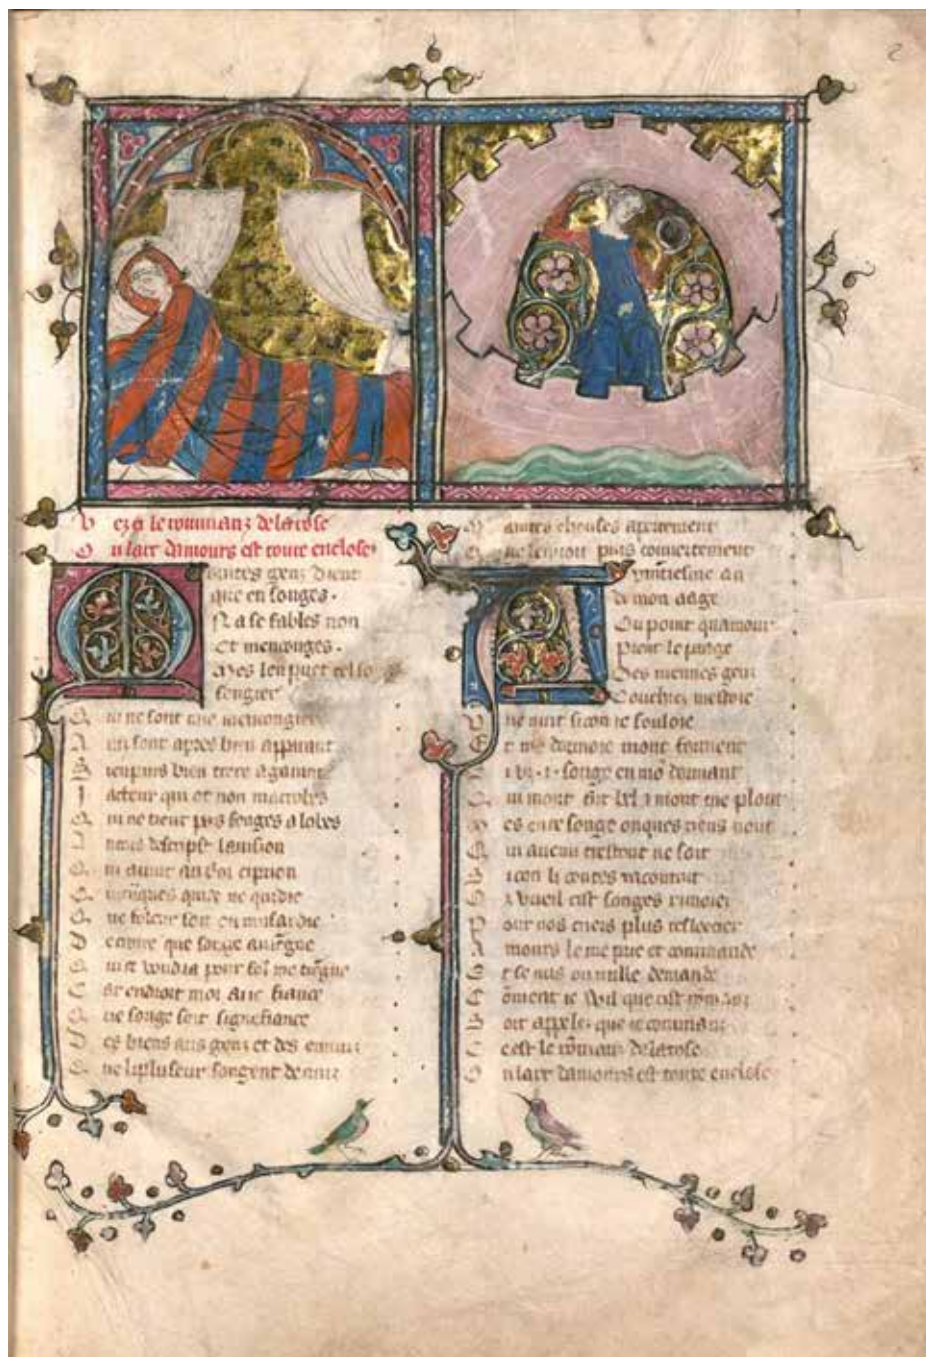 2
V ez ci le roumanz de la rose
O u lart damours est toute enclose
Maintes genz dient
que en songes.
N a se fables non
Et menconges.
Mes len puet tel so
songier
Q ui ne sont mie mencongier
A ins sont apres bien apparant
B ien puis bien trere a garant
I acteur qui ot non macrobes
Q ui ne tient pas songes a lobes
descript la vision
Q ui avint au roi cipion
Q uiconques quide ne qui die
Q ue foleur soit ou musardie
D e croire que songe aviegne
Q ui ce voudra pour fol me tiegne
C ar endroit moi ai ie fiance
Q ue songe soit signefiance
D es biens aus genz et des ennuiz
Q ue li pluseur songent de nuiz
M aintes choses
Q ue len voit puis couvertement
Au vintiesme an
de mon aage
Ou point quamour
prent le paage
Des iuennes genz
Couchiez mestoie
V ne nuit si con ie souloie
E t me dormoie mont forment
S i vi .i. songe en mon dormant
Q ui mont fu bel et mont me plout
M es en ce songe onques riens nout
Q ui avenu trestout ne soit
S i con li contes racontoit
O r vueil cest songes rimoier
P our nos cuers plus
A mours le me prie et commande
E t se nus ou nulle demande
C oment ie vueil que cest romanz
S oit appelez que ie commanz
C cest le romanz de la rose
O u lart damours est toute enclose